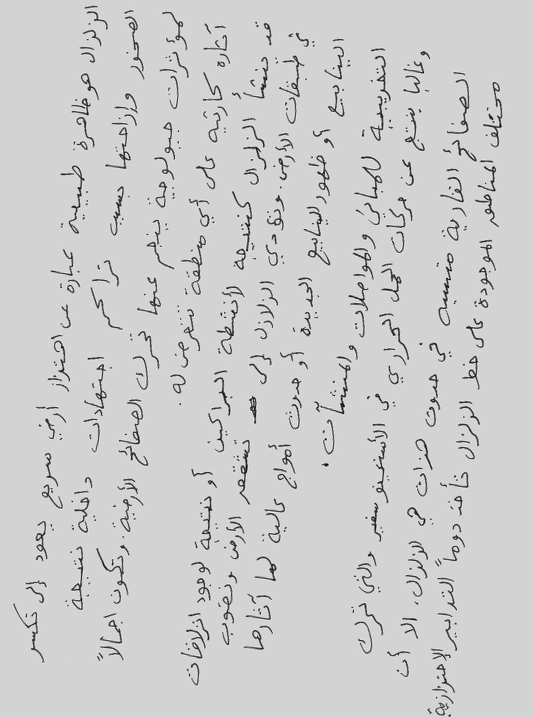 الزلزال هو ظاهرة طبيعية عبارة عن اهتزاز أرضي سريع يعود إلى تكسر
الصخور وإزاحتها بسبب تراكم اجتهادات داخلية نتيجة
لمؤثرات جيولوجية ينجم عنها تحرك الصفائح الأرضية. وتكون اجمالاً
آثاره كارثية على أي منطقة تتعرض له.
قد تنشأ الزلزال كنتيجة لأنشطة البراكين أو نتيجة لوجود انزلاقات
في طبقات الأرض. وتؤدي الزلازل إلى تشقق الأرض ونضوب
الينابيع أو ظهور الينابيع الجديدة أو حدوث أمواج عالية لها آثارها
التخريبية للمباني والمواصلات والمنشآت.
وغالبا ينتج عن حركات الحمل الحراري في الأسثينوسفير والتي تحرك
الصفائح القارية متسببة في حدوث هزات هي الزلزال. الا أن
مختلف المناطق الموجودة على خط الزلزال تأخذ دوماً التدابير الإحترازية.